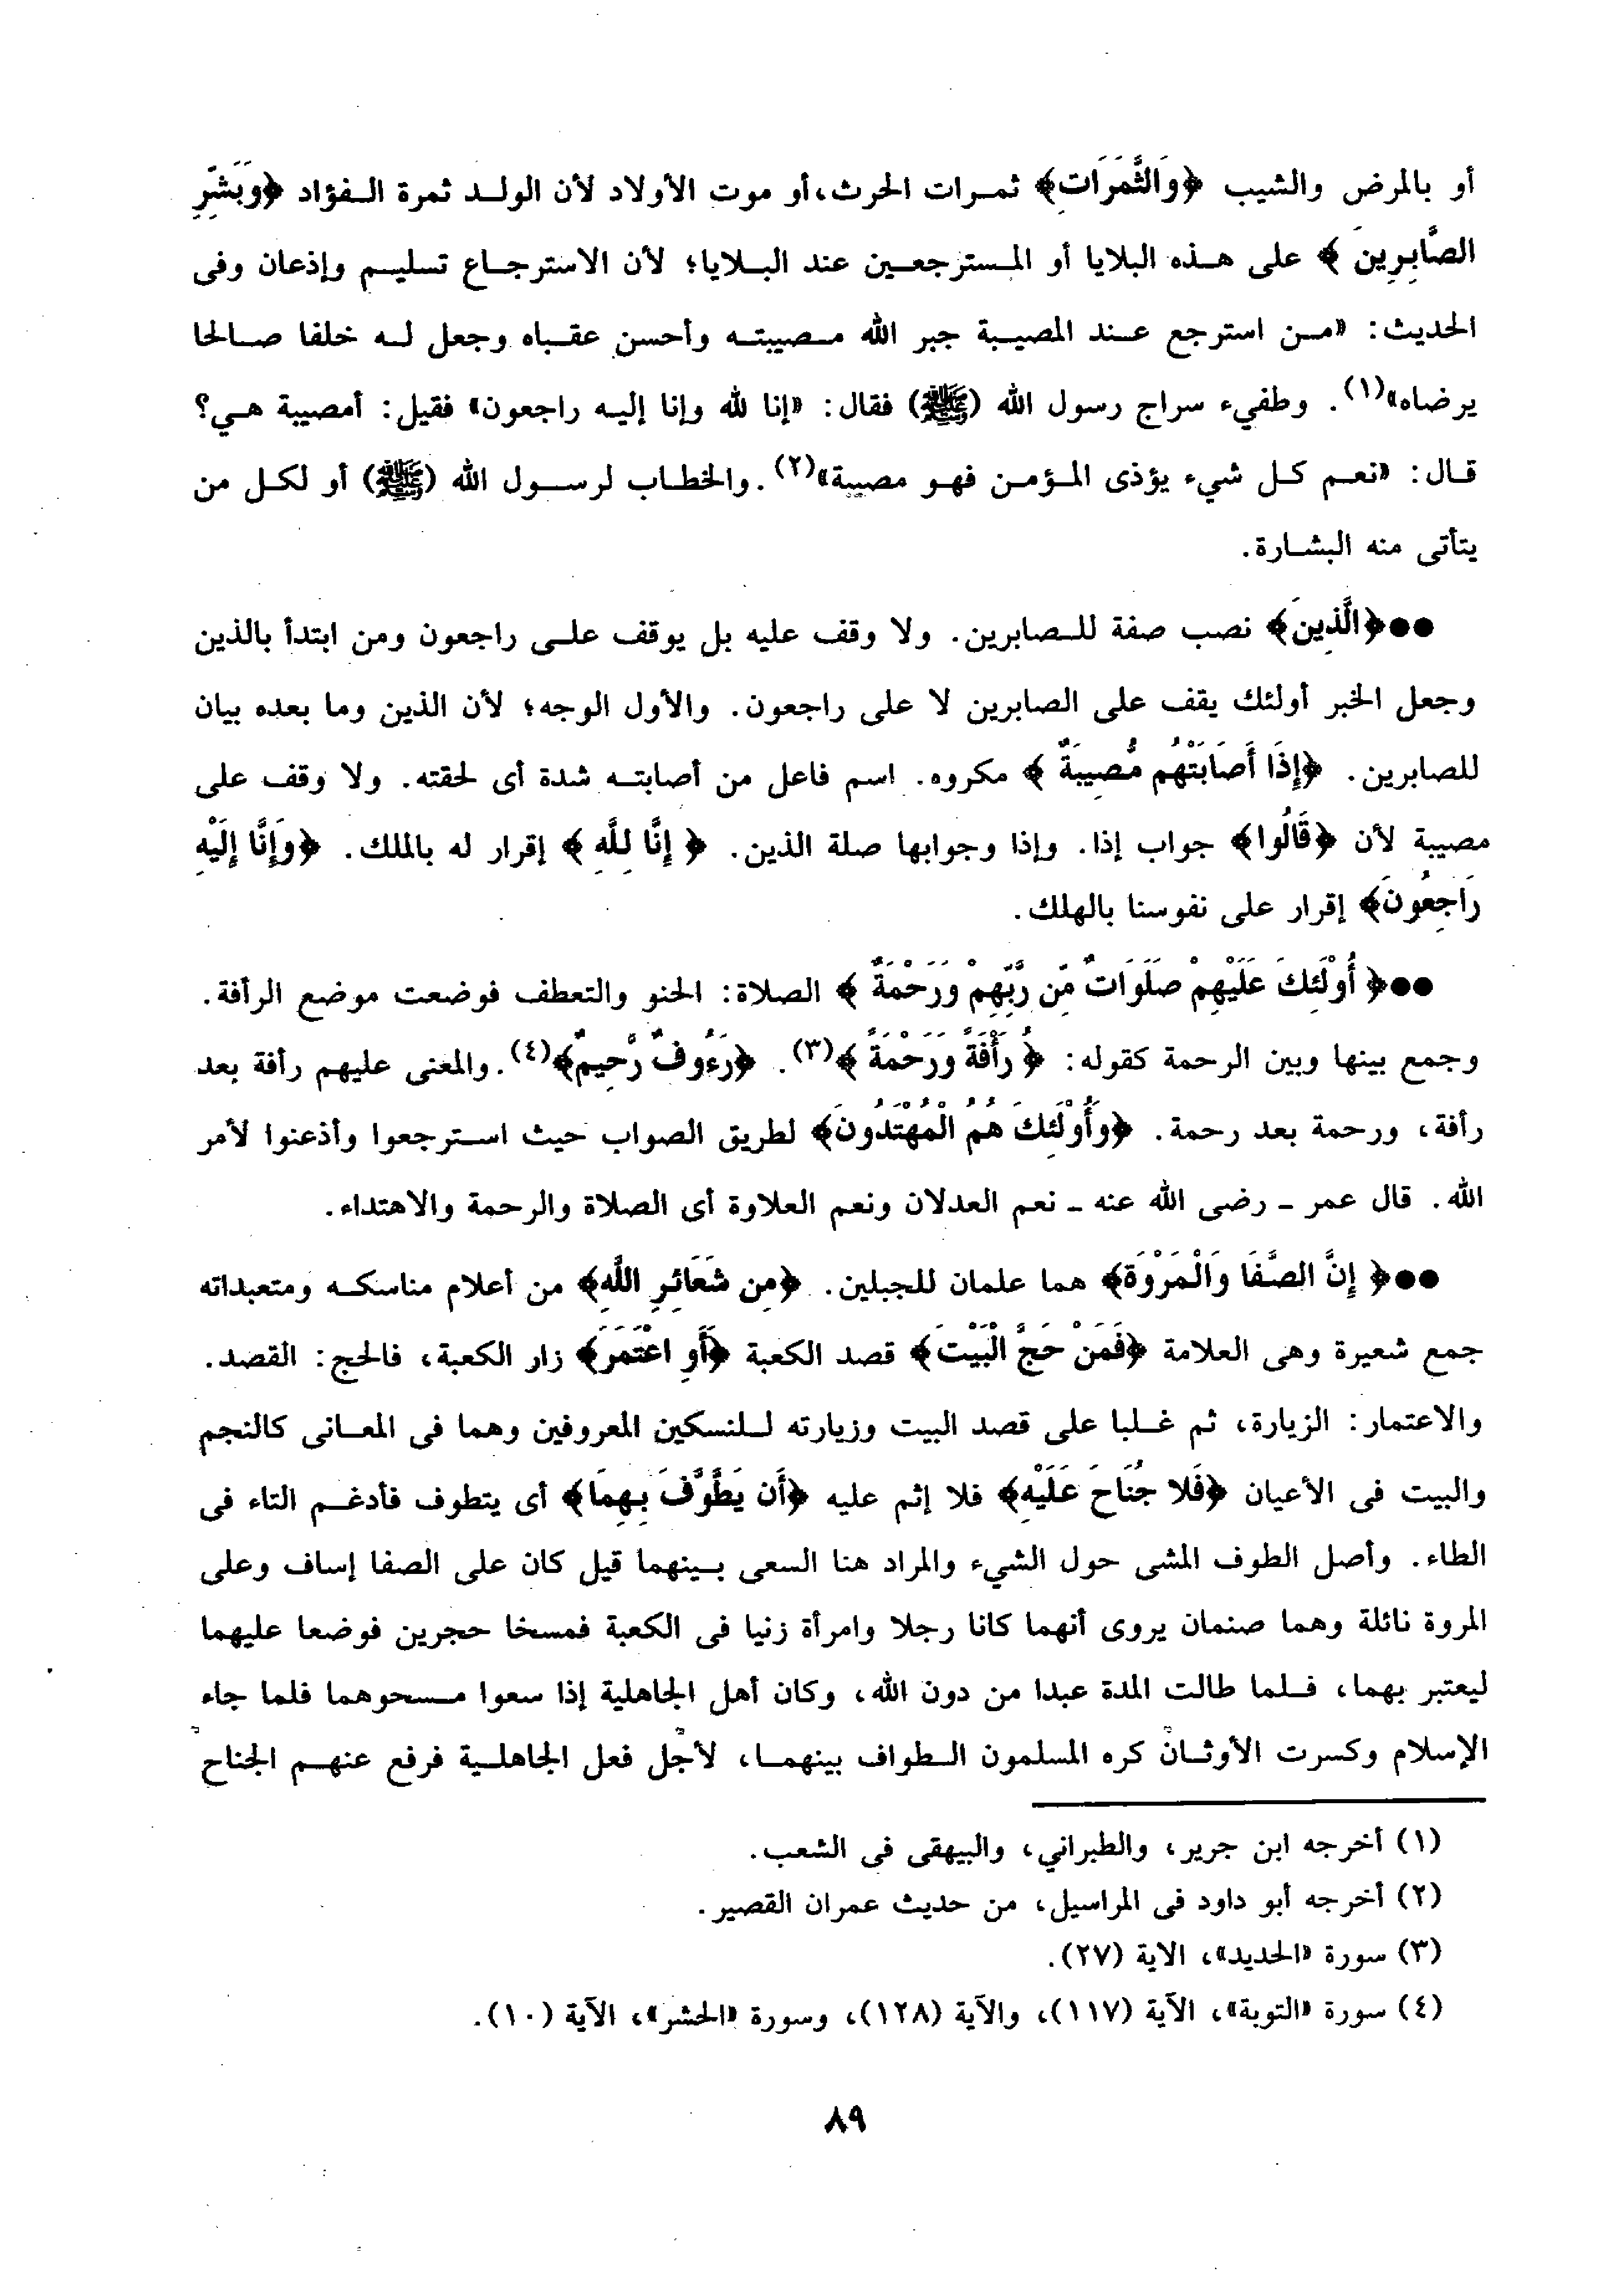 أو بالمرض والشيب ﴿وَالثَّمَرَاتِ﴾ ثمرات الحرث، أو موت الأولاد لأن الولد ثمرة الفؤاد ﴿وَبَشِّرِ
الصَّابِرِينَ ﴾ على هذه البلايا أو المسترجعين عند البلايا؛ لأن الاسترجاع تسليم وإذعان وفى
الحديث: «من استرجع عند المصيبة جبر الله مصيبته وأحسن عقباه وجعل له خلفا صالحا
يرضاه»(١). وطفيء سراج رسول الله (ﷺ) فقال: «إنا لله وإنا إليه راجعون» فقيل: أمصيبة هي؟
قال: «نعم كل شيء يؤذى المؤمن فهو مصيبة»(٢). والخطاب لرسول الله (ﷺ) أو لكل من
يتأتى منه البشارة.
●●﴿الَّذِينَ﴾ نصب صفة للصابرين. ولا وقف عليه بل يوقف على راجعون ومن ابتدأ بالذين
وجعل الخبر أولئك يقف على الصابرين لا على راجعون. والأول الوجه؛ لأن الذين وما بعده بيان
للصابرين. ﴿إِذَا أَصَابَتْهُم مُّصِيبَةٌ ﴾ مكروه. اسم فاعل من أصابته شدة أى لحقته. ولا وقف على
مصيبة لأن ﴿قَالُوا﴾ جواب إذا. وإذا وجوابها صلة الذين. ﴿ إِنَّا لِلَّهِ ﴾ إقرار له بالملك. ﴿وَإِنَّا إِلَيْهِ
رَاجِعُونَ﴾ إقرار على نفوسنا بالهلك.
●●﴿ أُوْلَئِكَ عَلَيْهِمْ صَلَوَاتٌ مِّن رَّبِّهِمْ وَرَحْمَةٌ ﴾ الصلاة: الحنو والتعطف فوضعت موضع الرأفة.
وجمع بينها وبين الرحمة كقوله: ﴿ رَأْفَةً وَرَحْمَةً ﴾(٣). ﴿رَءُوفٌ رَّحِيمٌ﴾(٤). والمعنى عليهم رأفة بعد
رأفة، ورحمة بعد رحمة. ﴿وَأُوْلَئِكَ هُمُ الْمُهْتَدُونَ﴾ لطريق الصواب حيث استرجعوا وأذعنوا لأمر
الله. قال عمر - رضى الله عنه - نعم العدلان ونعم العلاوة أى الصلاة والرحمة والاهتداء.
●●﴿ إِنَّ الصَّفَا وَالْمَرْوَةَ﴾ هما علمان للجبلين. ﴿مِن شَعَائِرِ اللَّهِ﴾ من أعلام مناسكه ومتعبداته
جمع شعيرة وهى العلامة ﴿فَمَنْ حَجَّ الْبَيْتَ﴾ قصد الكعبة ﴿أَوِ اعْتَمَرَ﴾ زار الكعبة، فالحج: القصد.
والاعتمار: الزيارة، ثم غلبا على قصد البيت وزيارته للنسكين المعروفين وهما فى المعانى كالنجم
والبيت فى الأعيان ﴿فَلا جُنَاحَ عَلَيْهِ﴾ فلا إثم عليه ﴿أَن يَطَّوَّفَ بِهِمَا﴾ أى يتطوف فأدغم التاء فى
الطاء. وأصل الطوف المشى حول الشيء والمراد هنا السعى بينهما قيل كان على الصفا إساف وعلى
المروة نائلة وهما صنمان يروى أنهما كانا رجلا وامرأة زنيا فى الكعبة فمسخا حجرين فوضعا عليهما
ليعتبر بهما، فلما طالت المدة عبدا من دون الله، وكان أهل الجاهلية إذا سعوا مسحوهما فلما جاء
الإسلام وكسرت الأوثان كره المسلمون الطواف بينهما، لأجل فعل الجاهلية فرفع عنهم الجناح
(١) أخرجه ابن جرير، والطبراني، والبيهقى فى الشعب.
(٢) أخرجه أبو داود فى المراسيل، من حديث عمران القصير.
(٣) سورة «الحديد»، الاية (٢٧).
(٤) سورة «التوبة»، الآية (١١٧)، والآية (١٢٨)، وسورة «الحشر»، الآية (١٠).
٨٩